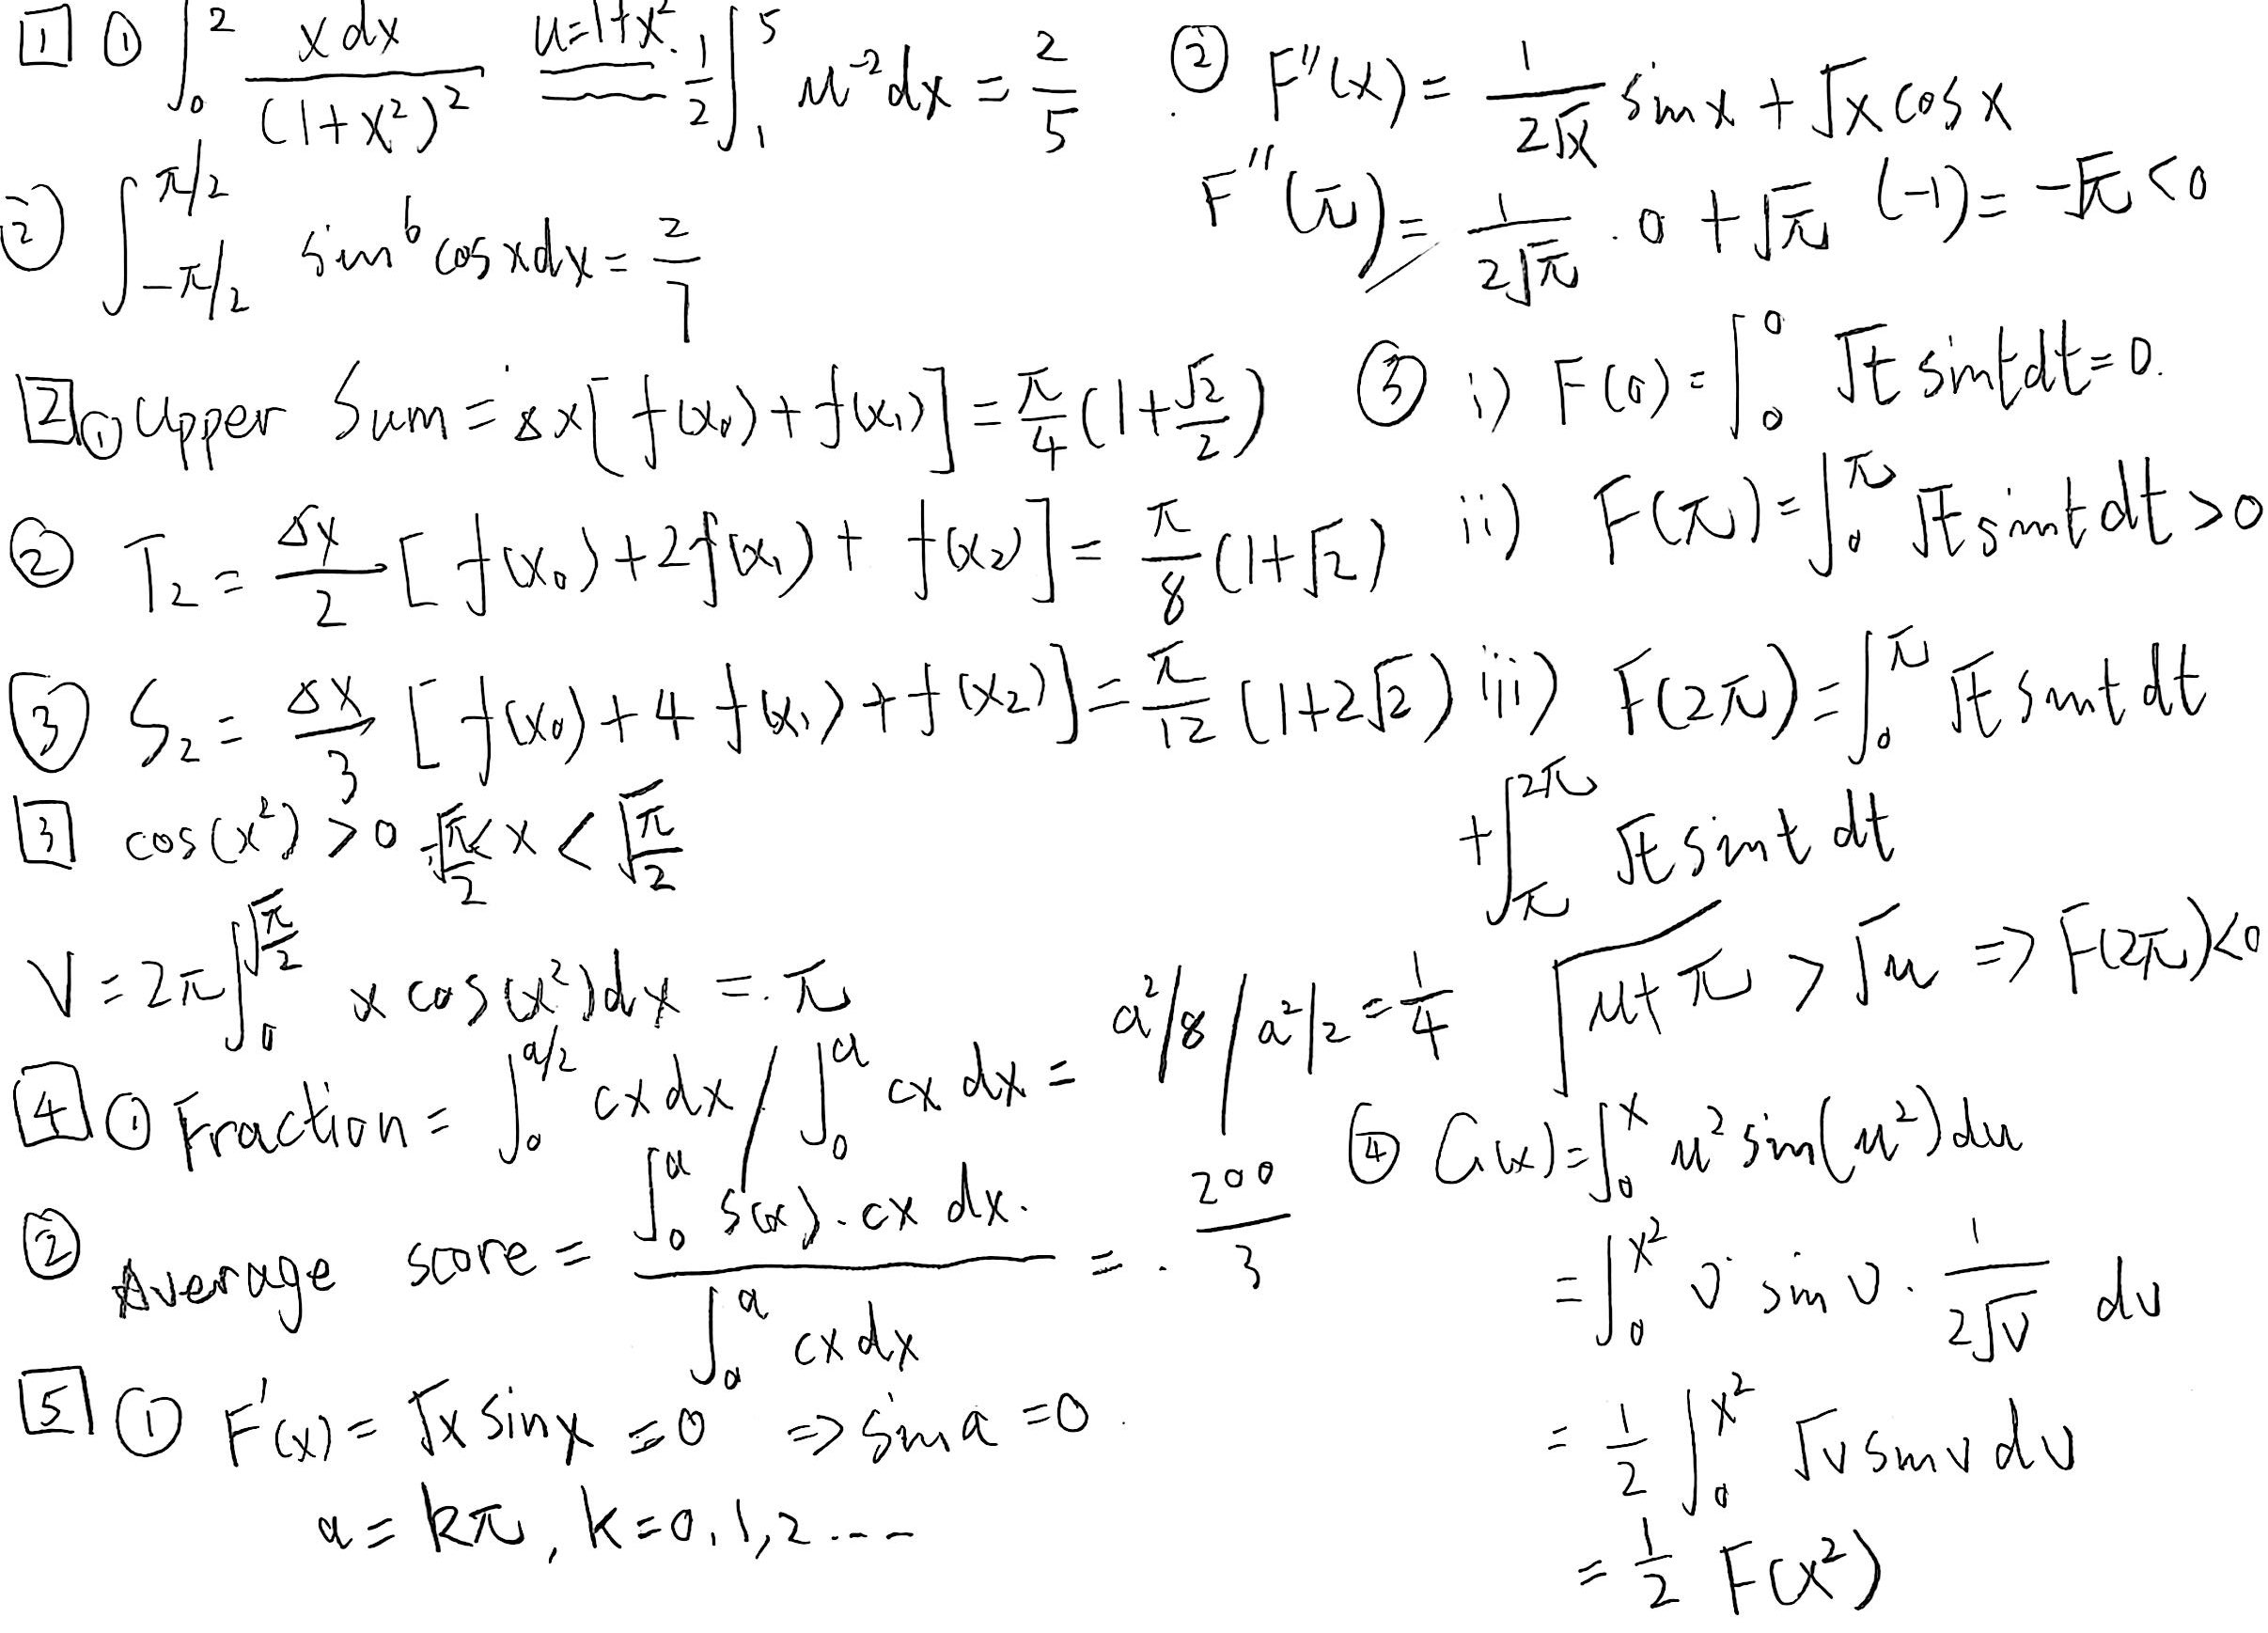 [1] ① ∫₀² x dx / (1+x²)² u=1+x² = 1/2 ∫₁⁵ u⁻² dx = 2/5
② ∫_{-π/2}^{π/2} sin⁶ cosx dx = 2/7
[2] ① Upper Sum = Δx[f(x₀)+f(x₁)] = π/4 (1+√2/2)
② T₂ = Δx/2 [f(x₀)+2f(x₁)+f(x₂)] = π/8 (1+√2)
③ S₂ = Δx/3 [f(x₀)+4f(x₁)+f(x₂)] = π/12 (1+2√2)
[3] cos(x²) > 0 -√(π/2) < x < √(π/2)
V = 2π ∫₀^{√(π/2)} x cos(x²) dx = π
[4] ① Fraction = ∫₀^{a/2} cx dx / ∫₀^a cx dx = a²/8 / a²/2 = 1/4
② Average score = ∫₀^a S(x)·cx dx / ∫₀^a cx dx = 200/3
[5] ① F'(x) = √x sinx = 0 ⇒ sin a = 0
a = kπ, k = 0, 1, 2 ...
② F''(x) = 1/(2√x) sinx + √x cosx
F''(π) = 1/(2√π) · 0 + √π (-1) = -√π < 0
③ i) F(0) = ∫₀⁰ √t sint dt = 0.
ii) F(π) = ∫₀^π √t sint dt > 0
iii) F(2π) = ∫₀^π √t sint dt
+ ∫_π^{2π} √t sint dt
√(u+π) > √u ⇒ F(2π) < 0
④ G(x) = ∫₀^x u² sin(u²) du
= ∫₀^{x²} v sin v · 1/(2√v) dv
= 1/2 ∫₀^{x²} √v sinv dv
= 1/2 F(x²)